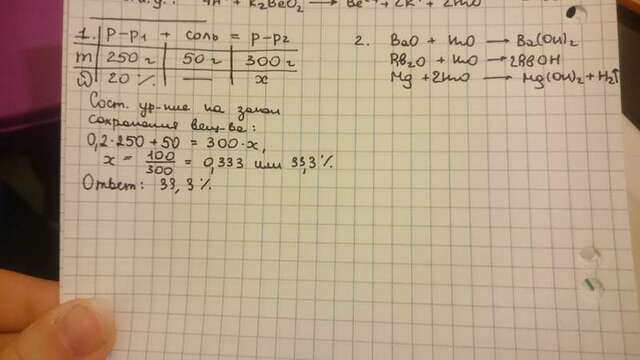 4H⁺ + K₂BeO₂ → Be²⁺ + 2K⁺ + 2H₂O
1. Р-р₁ + соль = р-р₂
m 250 г 50 г 300 г
ω 20 % — x
Сост. ур-ние на закон
сохранения вещ-ва:
0,2·250 + 50 = 300·x,
x = 100/300 = 0,333 или 33,3 %.
Ответ: 33,3 %
2. BaO + H₂O → Ba(OH)₂
Rb₂O + H₂O → 2RbOH
Mg + 2H₂O → Mg(OH)₂ + H₂↑